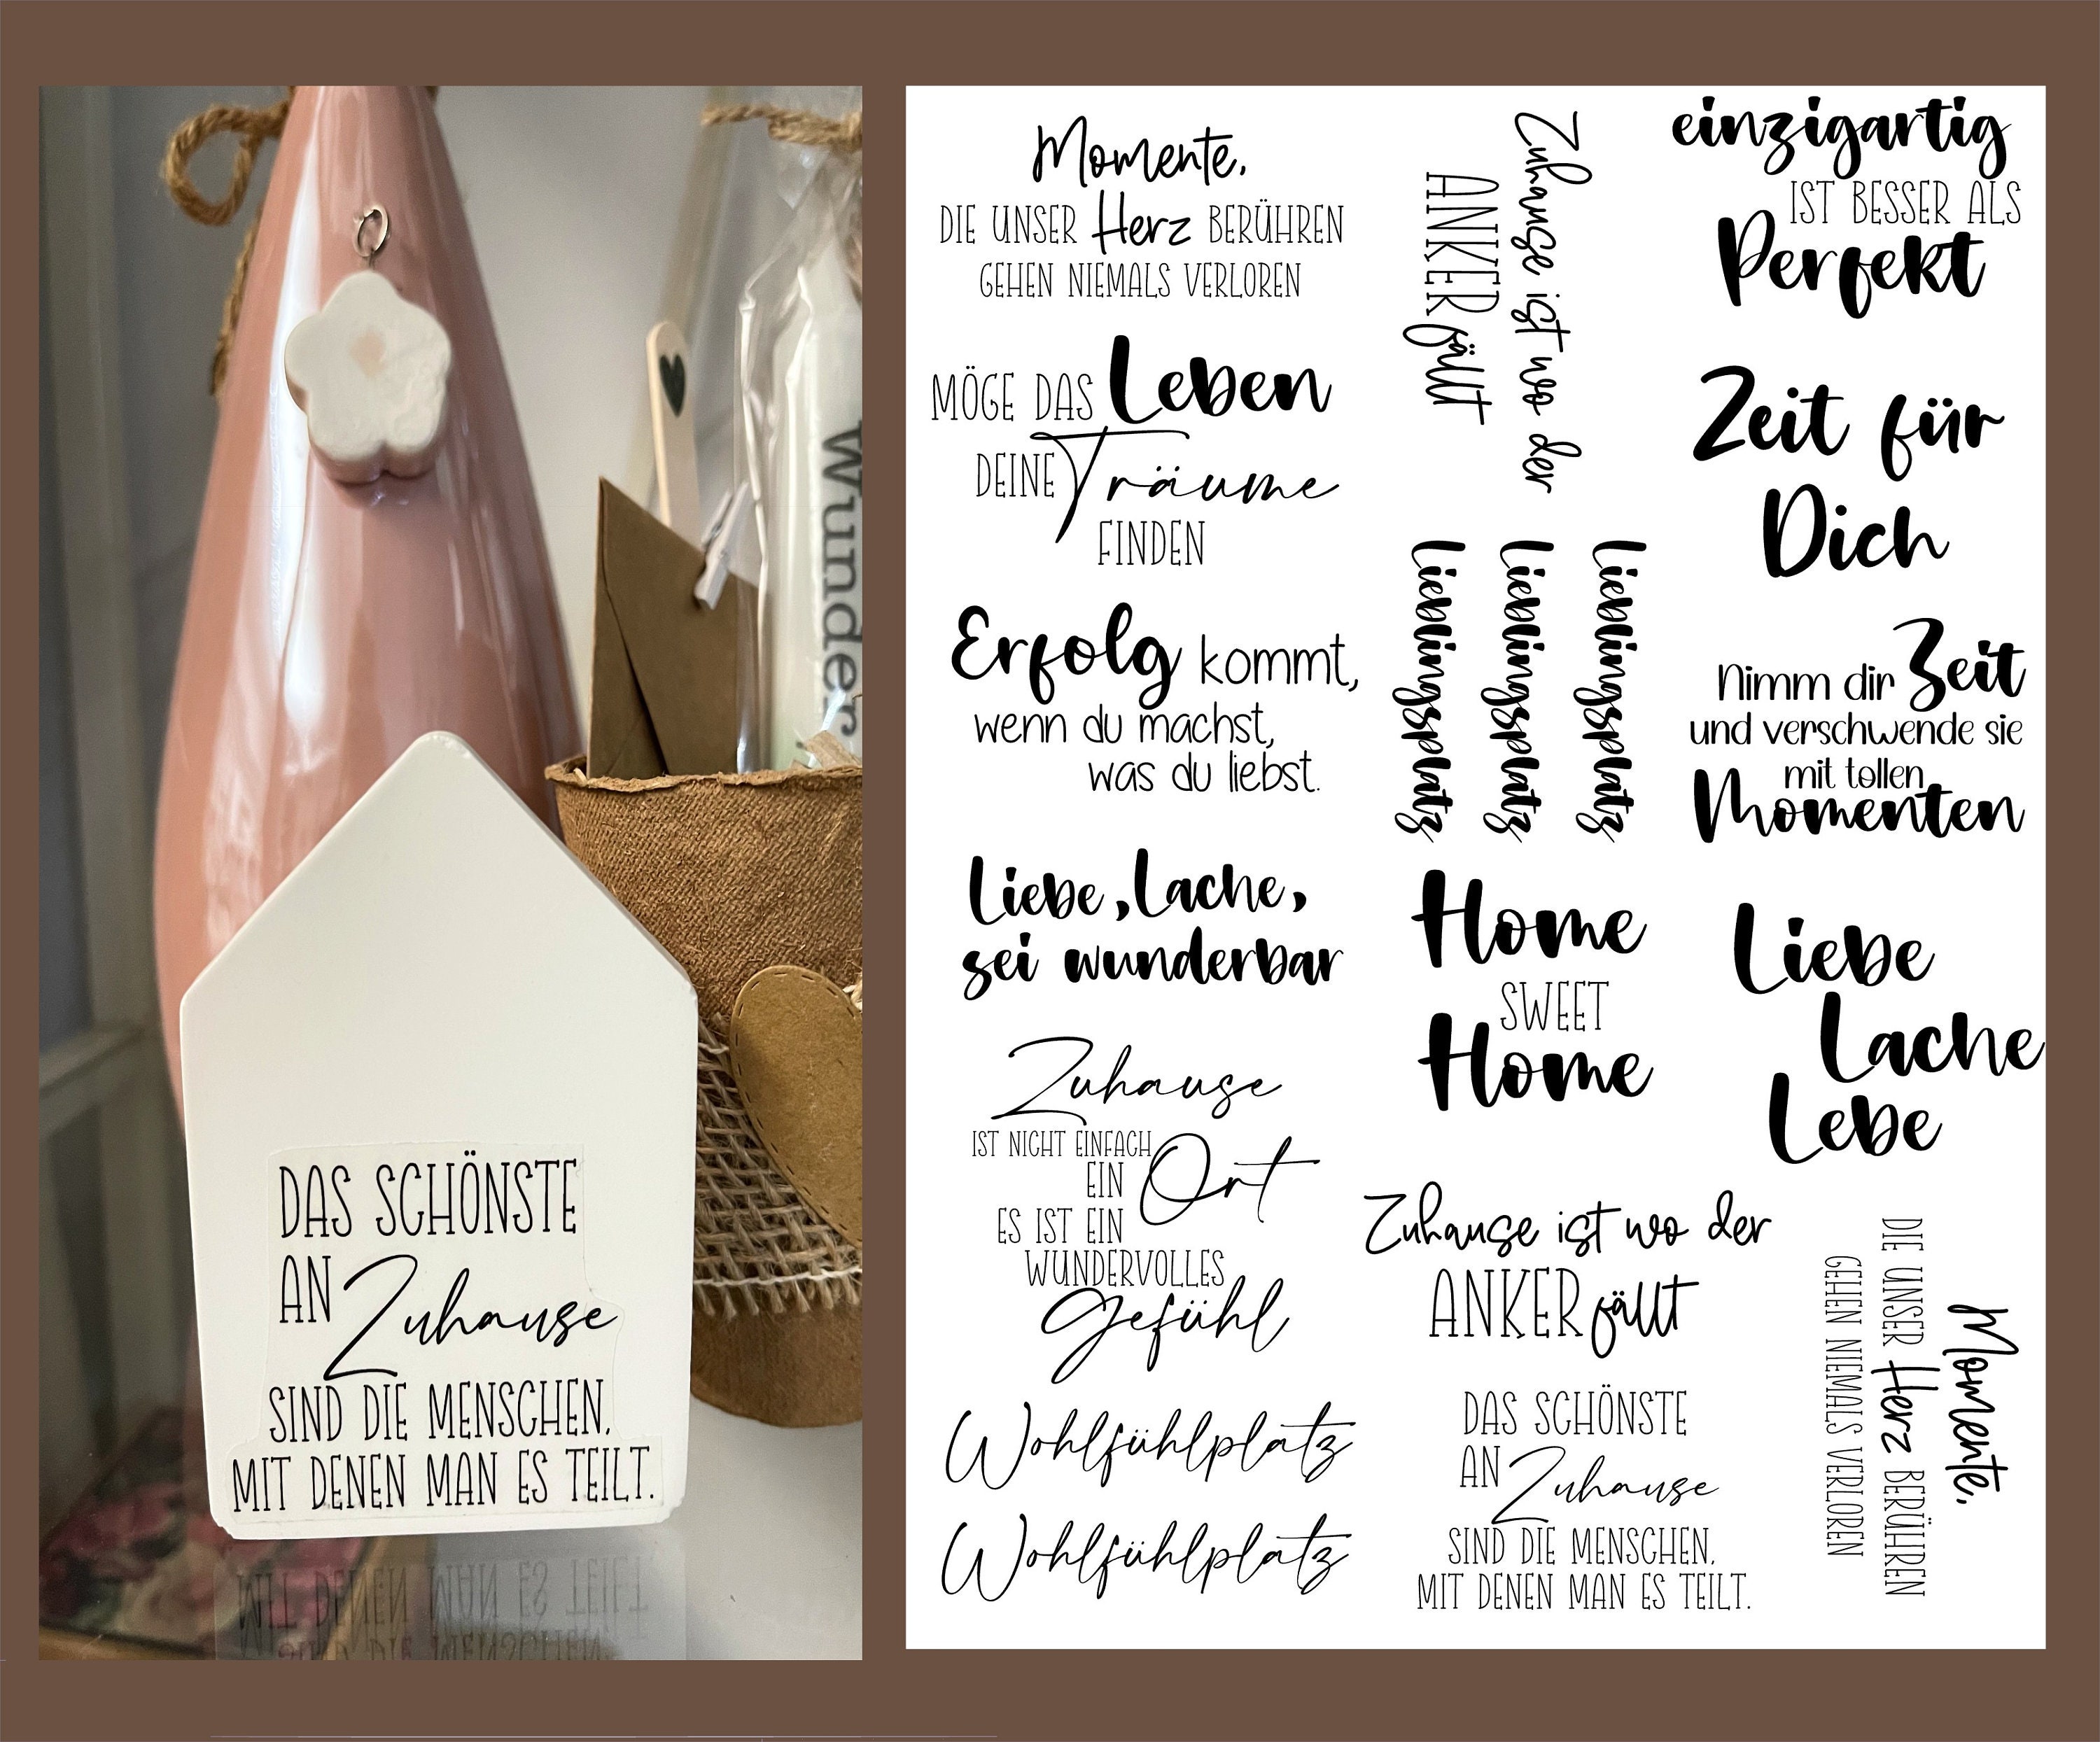 Wunder
DAS SCHÖNSTE
AN Zuhause
SIND DIE MENSCHEN,
MIT DENEN MAN ES TEILT.
MIT DENEN MAN ES TEILT
SIND DIE MENSCHEN
Momente,
DIE UNSER Herz BERÜHREN
GEHEN NIEMALS VERLOREN
MÖGE DAS Leben
DEINE Träume
FINDEN
Erfolg kommt,
wenn du machst,
was du liebst.
Liebe, Lache,
sei wunderbar
Zuhause
IST NICHT EINFACH
EIN Ort
ES IST EIN
WUNDERVOLLES
Gefühl
Wohlfühlplatz
Wohlfühlplatz
Zuhause ist wo der
ANKER fällt
Lieblingsplatz
Lieblingsplatz
Lieblingsplatz
Home
SWEET
Home
Zuhause ist wo der
ANKER fällt
DAS SCHÖNSTE
AN Zuhause
SIND DIE MENSCHEN,
MIT DENEN MAN ES TEILT.
einzigartig
IST BESSER ALS
Perfekt
Zeit für
Dich
Nimm dir Zeit
und verschwende sie
mit tollen
Momenten
Liebe
Lache
Lebe
Momente,
DIE UNSER Herz BERÜHREN
GEHEN NIEMALS VERLOREN